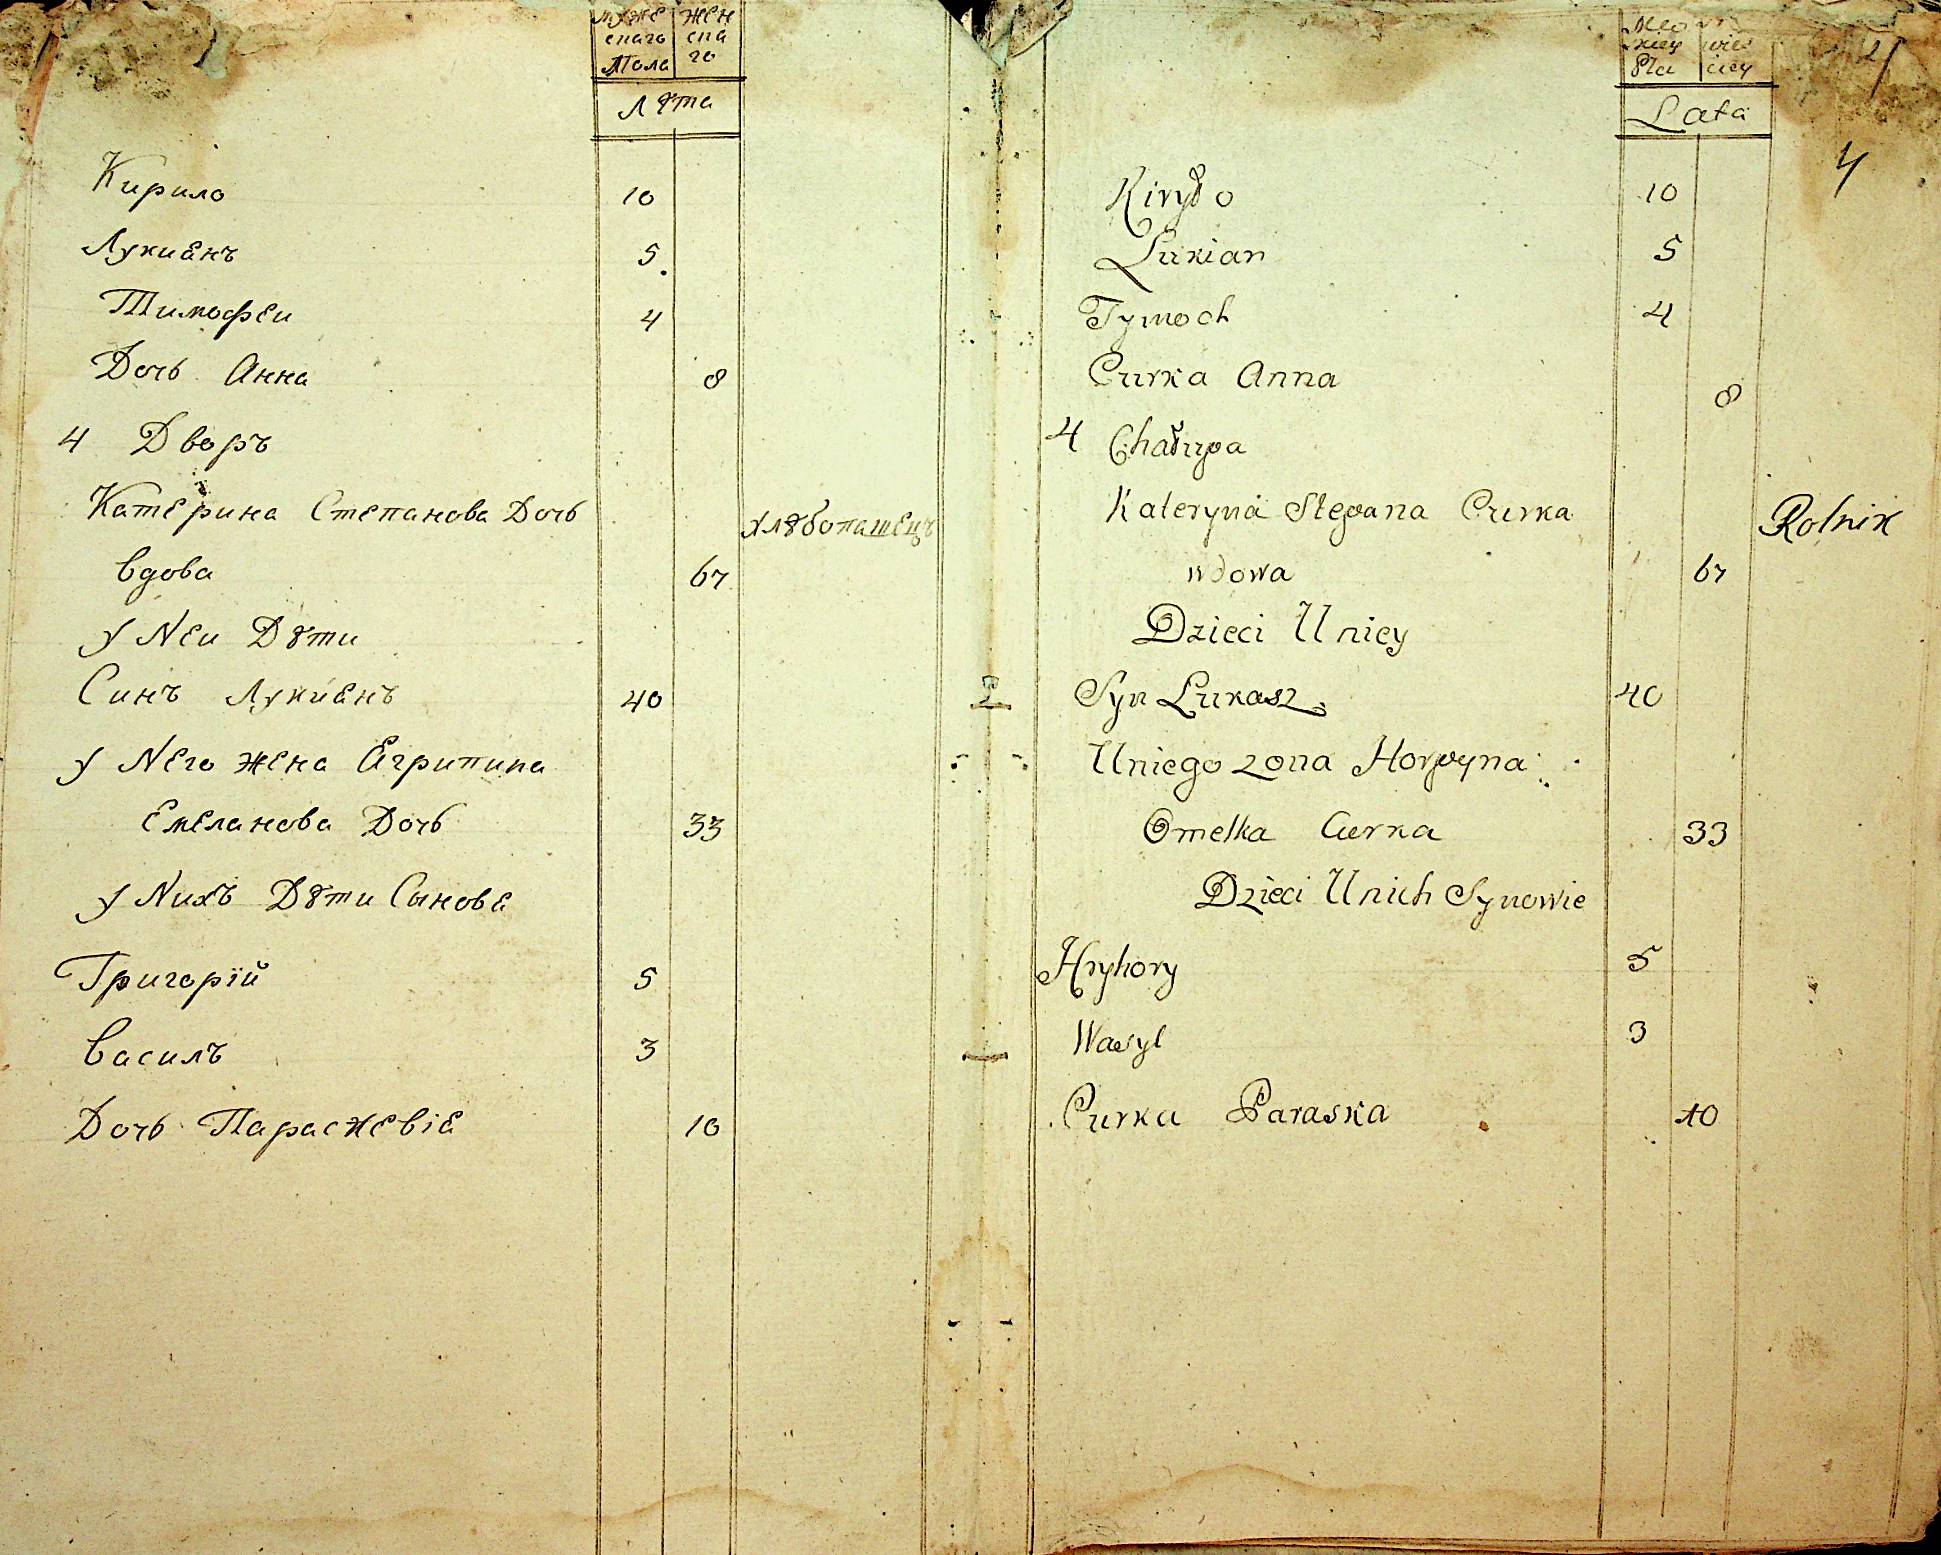 муже жен
скаго ска
Пола го
Лѣта
Кирило 10
Лукиянъ 5
Тимофеи 4
Дочь Анна 8
4 Дворъ
Катерина Степанова Дочь хлѣбопашецъ
вдова 67
у Nеи Дѣти
Синъ Лукиянъ 40
у Nего жена Агрипина
Емеланова Дочь 33
у Nихъ Дѣти Сынове
Григорій 5
Василъ 3
Дочь Параскевіа 10
Płci
Lata
4
Kiryło 10
Lukian 5
Tymoch 4
Curka Anna 8
4 Chałupa
Kateryna Stepana Curka Rolnik
wdowa 67
Dzieci U niey
Syn Lukasz 40
Uniego zona Horpyna
Omelka Curka 33
Dzieci Unich Synowie
Hryhory 5
Wasyl 3
Curka Paraska 10